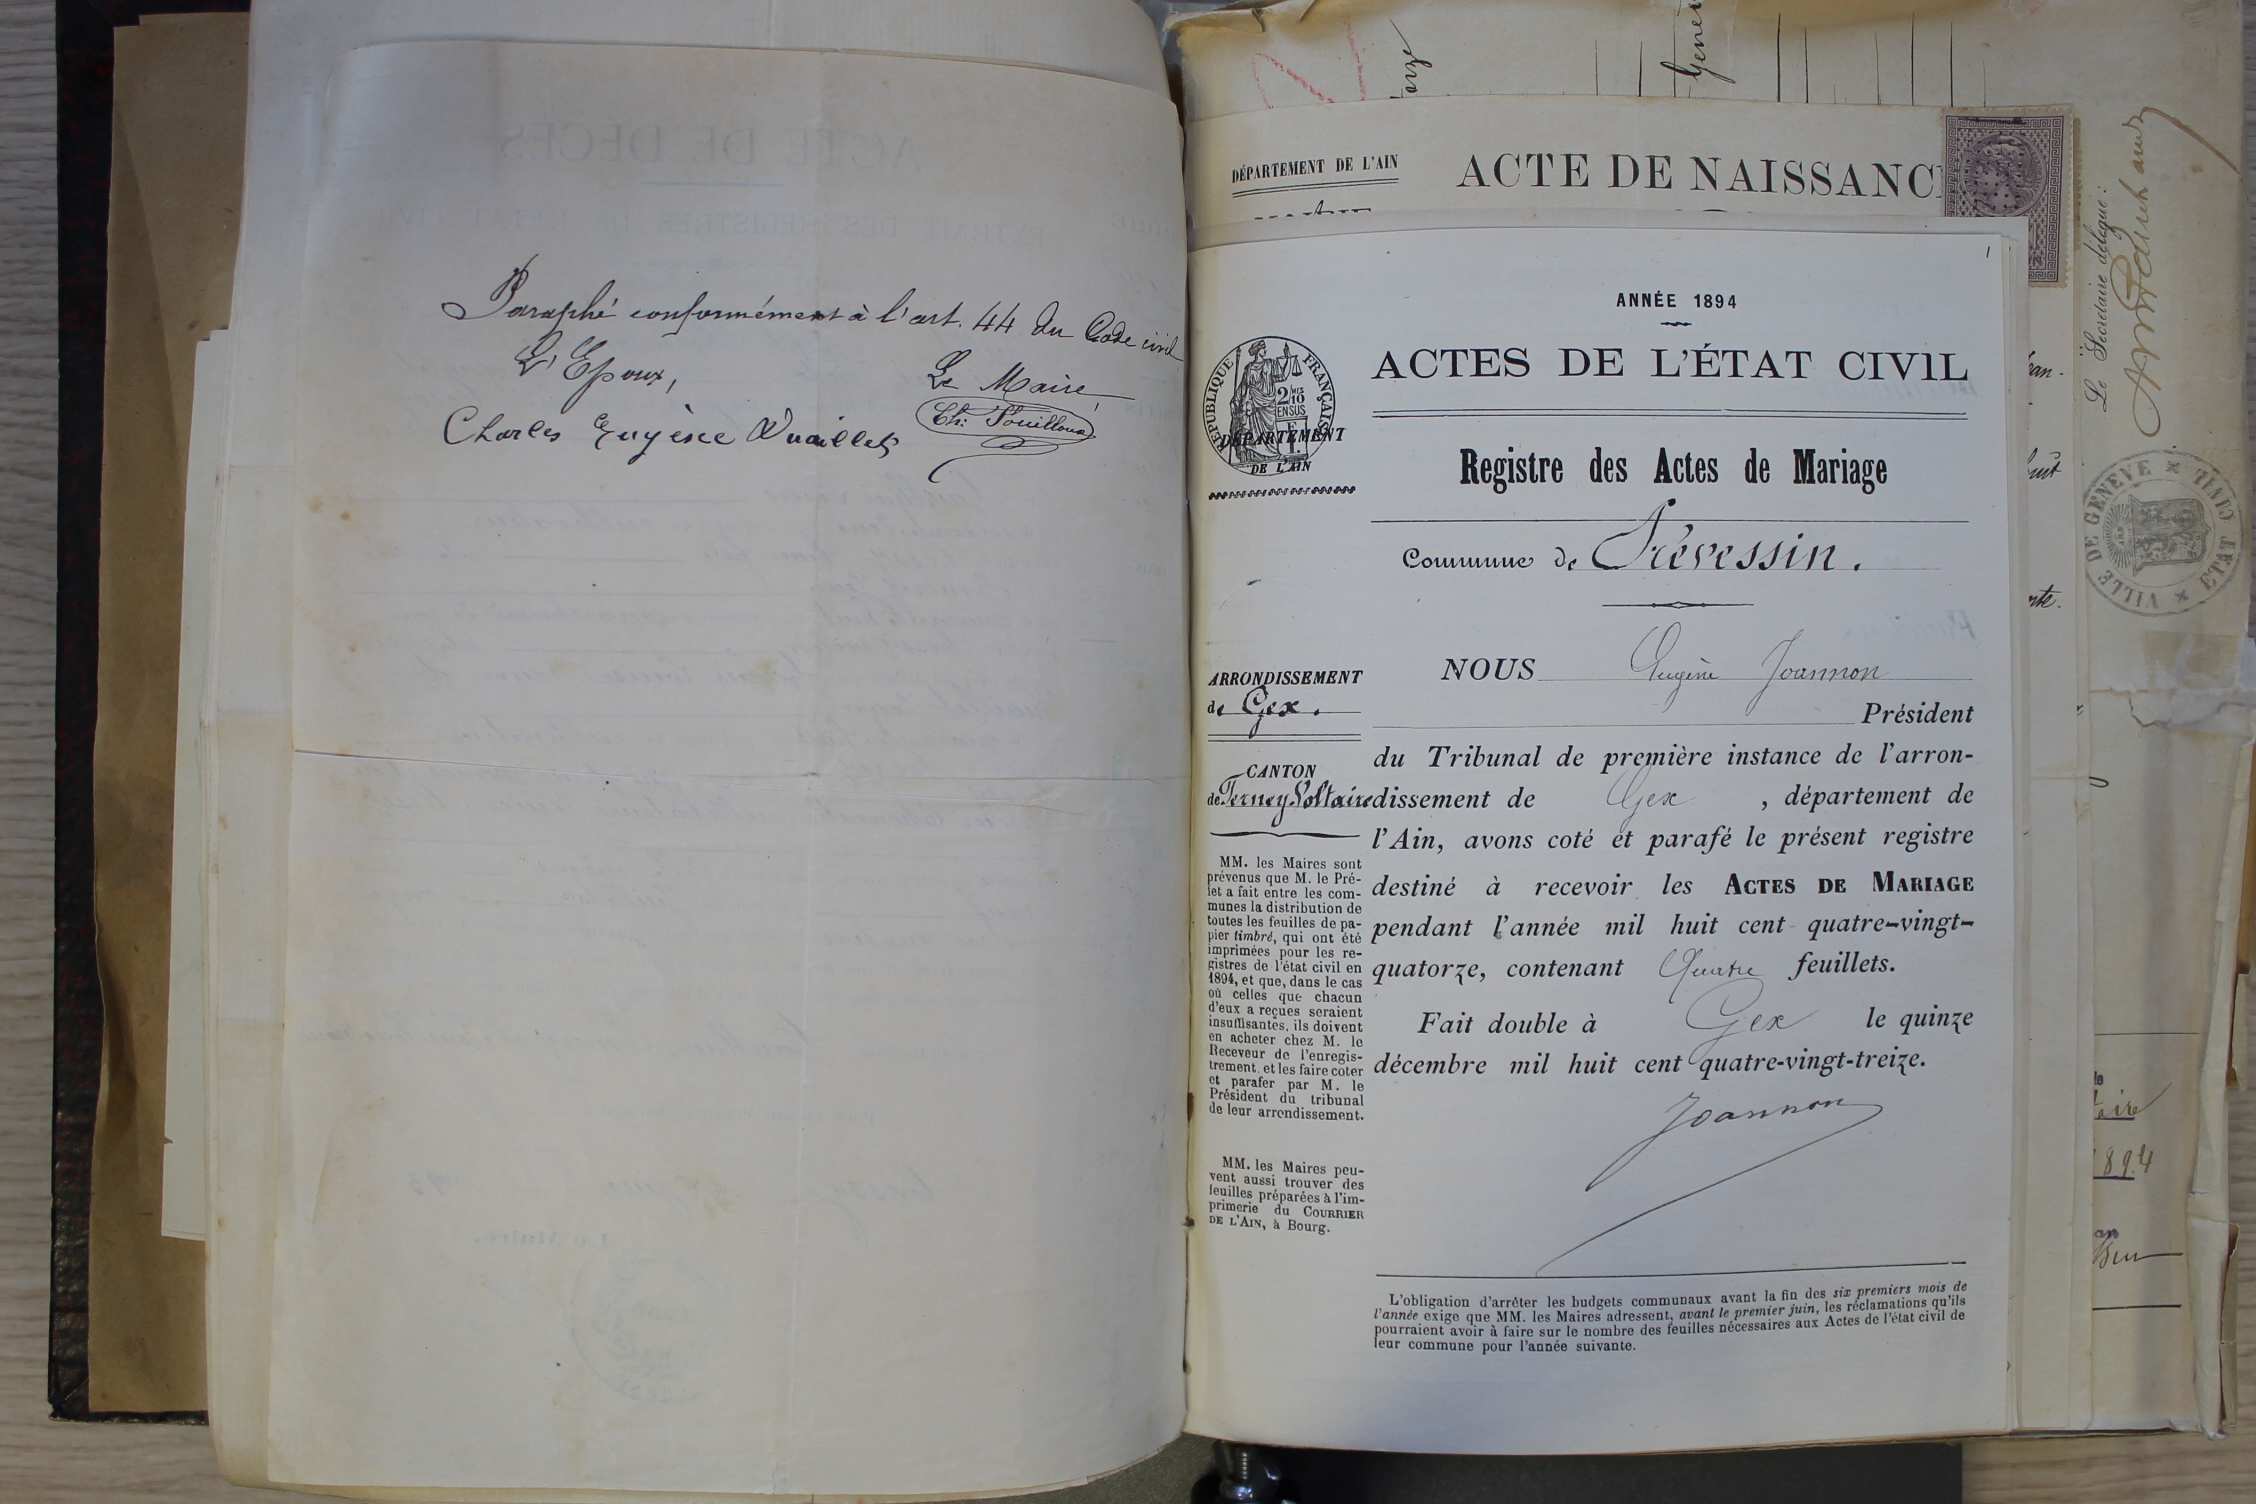 Paraphé conformément à l'art. 44 du Code civil
L'Epoux,
Le Maire,
Charles Eugène Vuaillet
DÉPARTEMENT DE L'AIN
ACTE DE NAISSANC
Le Secrétaire délégué :
VILLE DE GENÈVE
ETAT CIVIL
1
ANNÉE 1894
ACTES DE L'ÉTAT CIVIL
RÉPUBLIQUE FRANÇAISE
2/10
EN SUS
DÉPARTEMENT
DE L'AIN
Registre des Actes de Mariage
Commune de Prévessin.
ARRONDISSEMENT
de Gex.
CANTON
de Ferney-Voltaire
MM. les Maires sont
prévenus que M. le Pré-
fet a fait entre les com-
munes la distribution de
toutes les feuilles de pa-
pier timbré, qui ont été
imprimées pour les re-
gistres de l'état civil en
1894, et que, dans le cas
où celles que chacun
d'eux a reçues seraient
insuffisantes, ils doivent
en acheter chez M. le
Receveur de l'enregis-
trement et les faire coter
et parafer par M. le
Président du tribunal
de leur arrondissement.
MM. les Maires peu-
vent aussi trouver des
feuilles préparées à l'im-
primerie du COURRIER
DE L'AIN, à Bourg.
NOUS Eugène Joannon
Président
du Tribunal de première instance de l'arron-
dissement de Gex , département de
l'Ain, avons coté et parafé le présent registre
destiné à recevoir les ACTES DE MARIAGE
pendant l'année mil huit cent quatre-vingt-
quatorze, contenant Quatre feuillets.
Fait double à Gex le quinze
décembre mil huit cent quatre-vingt-treize.
Joannon
L'obligation d'arrêter les budgets communaux avant la fin des six premiers mois de
l'année exige que MM. les Maires adressent, avant le premier juin, les réclamations qu'ils
pourraient avoir à faire sur le nombre des feuilles nécessaires aux Actes de l'état civil de
leur commune pour l'année suivante.